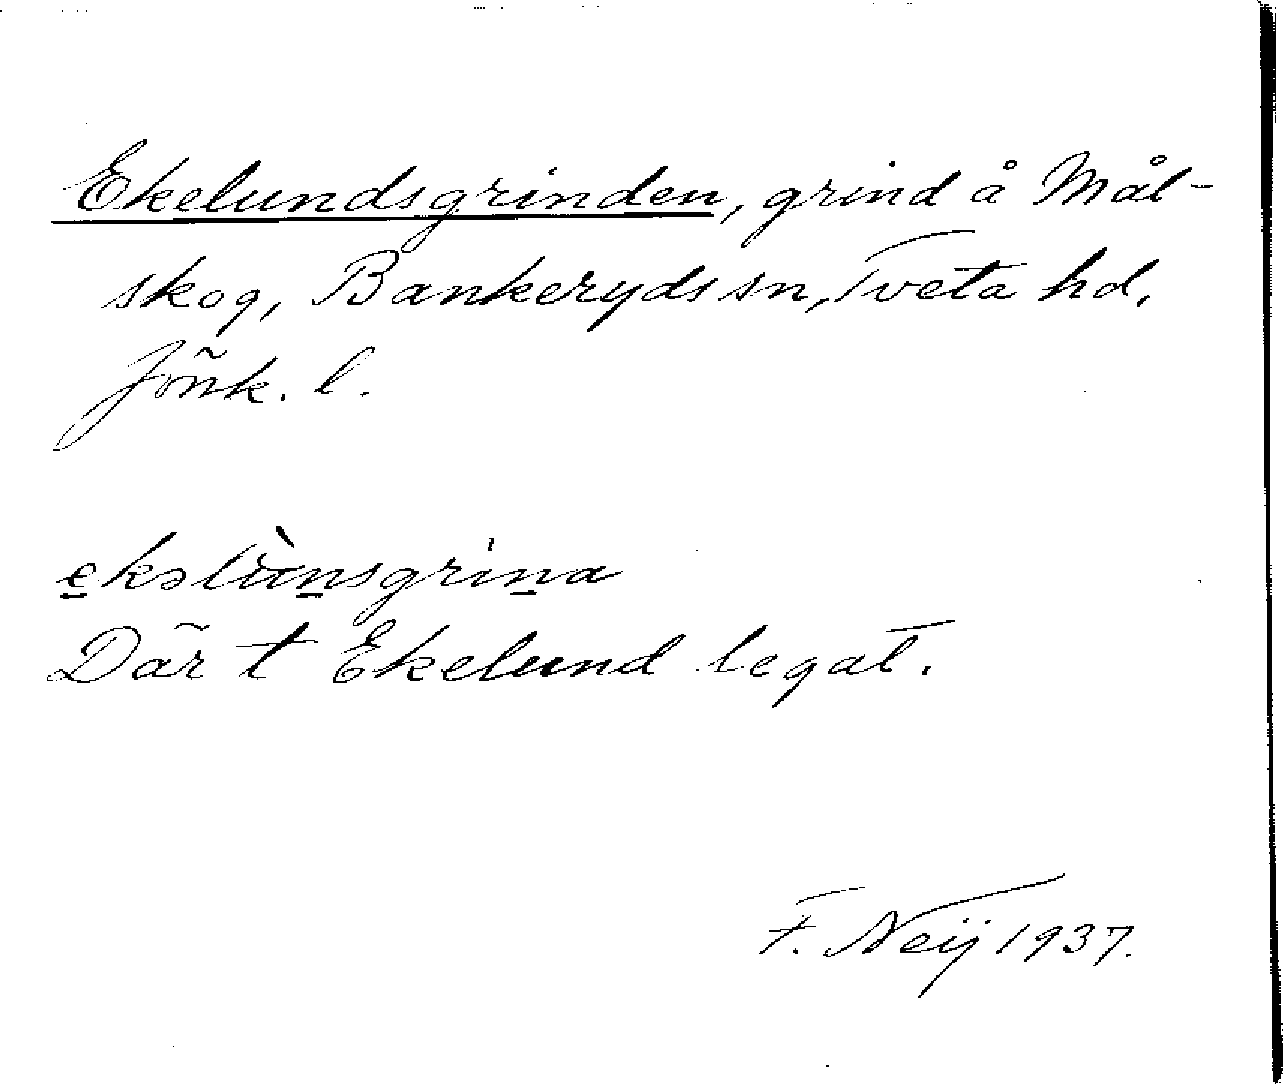 Ekelundsgrinden, grind å Mål-
skog, Bankeryds sn, Tveta hd,
Jönk. l.
e̠kəlùn̠sgrin̠a
Där t Ekelund legat.
F. Neij 1937.